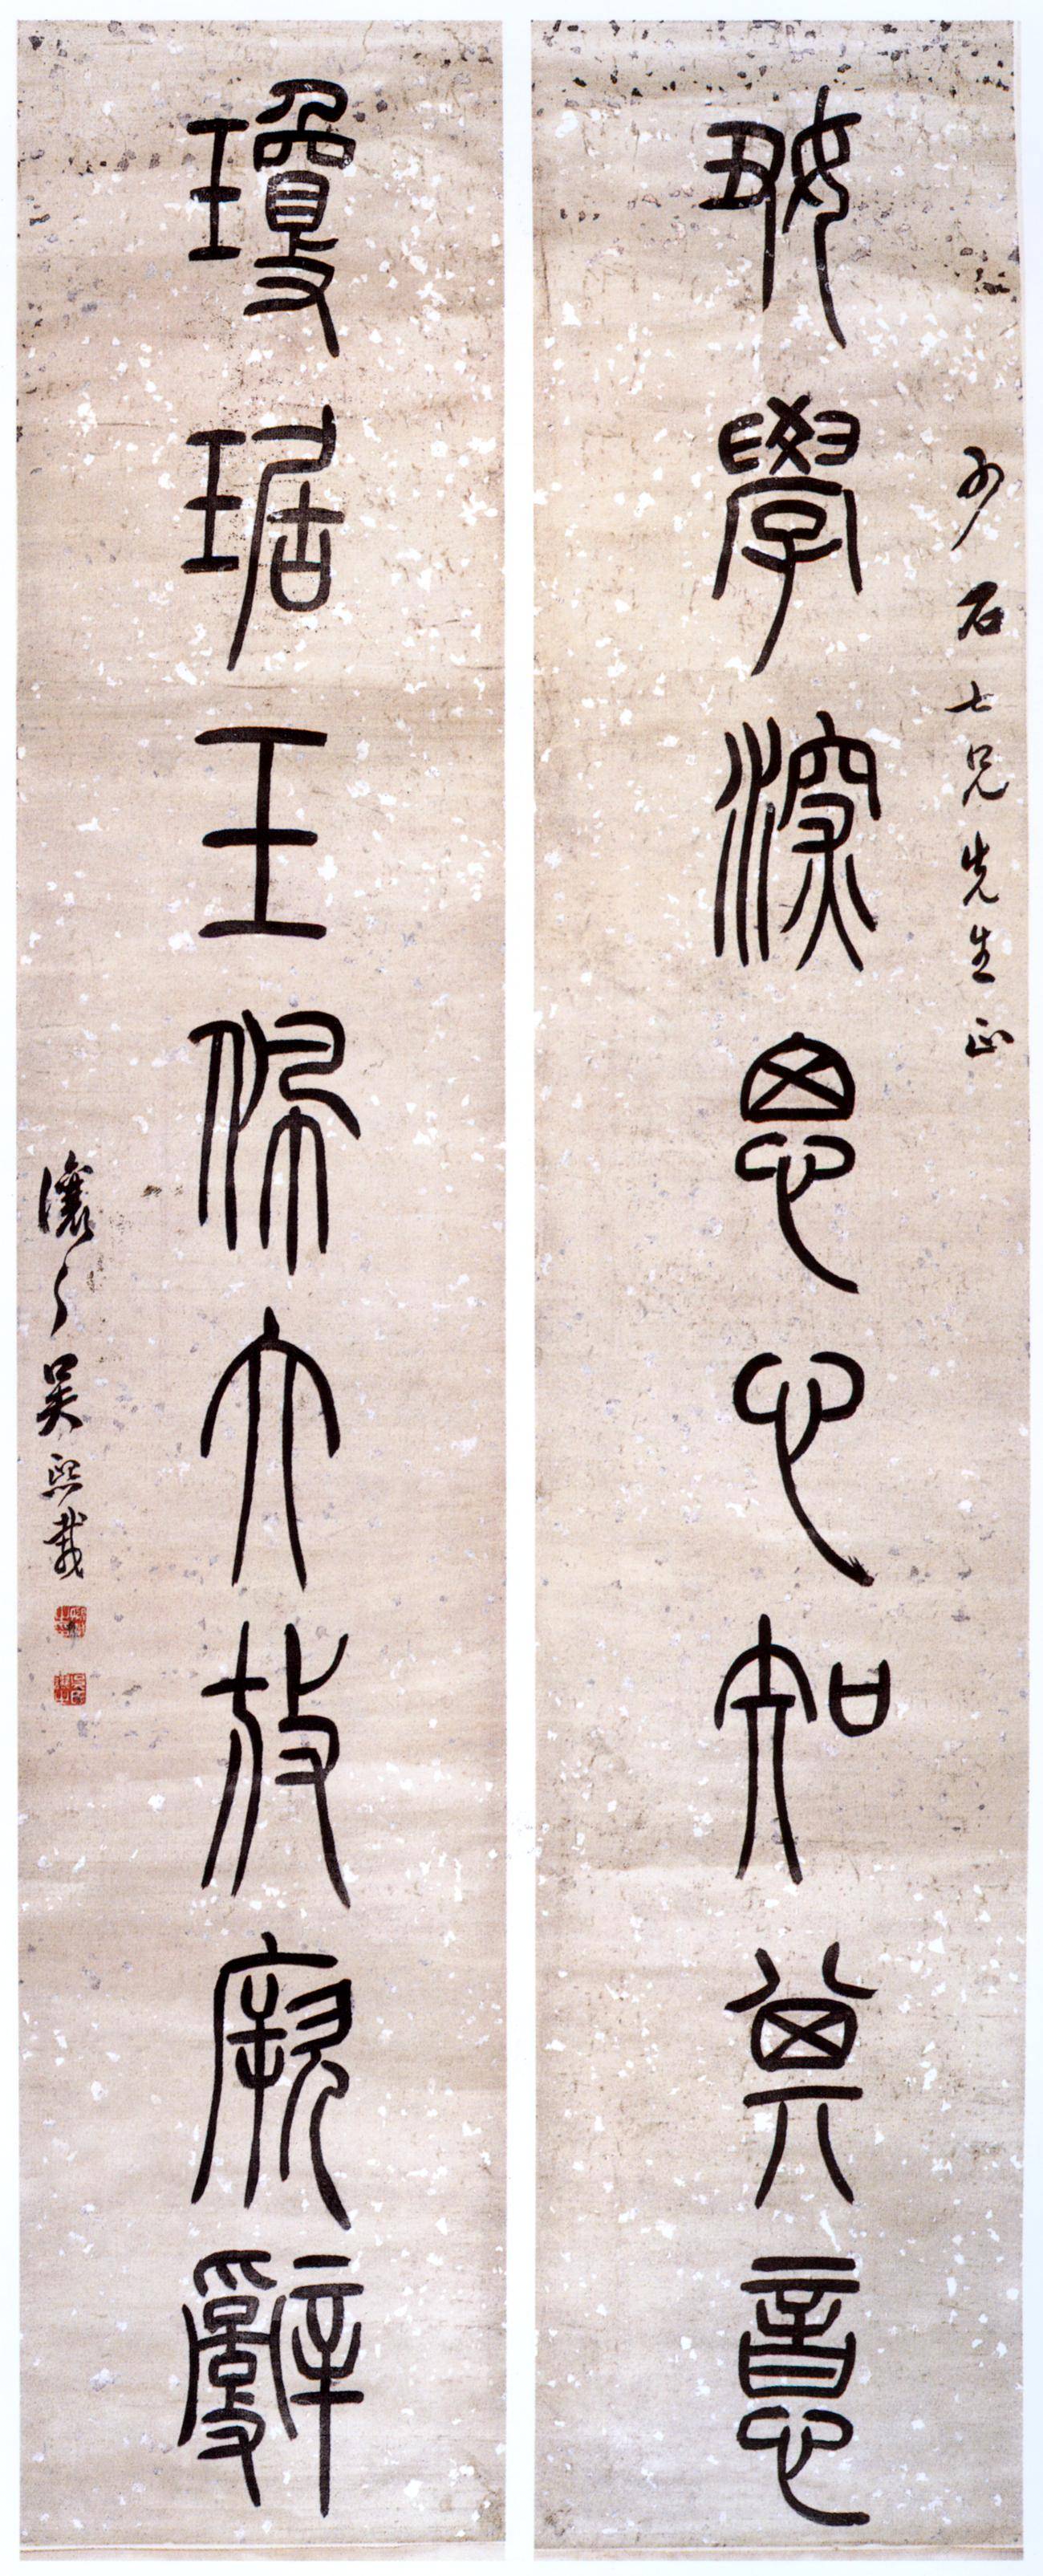 少石七兄先生正
好學深思心知其意
瓊琚玉佩大放厥辭
讓之吳熙載